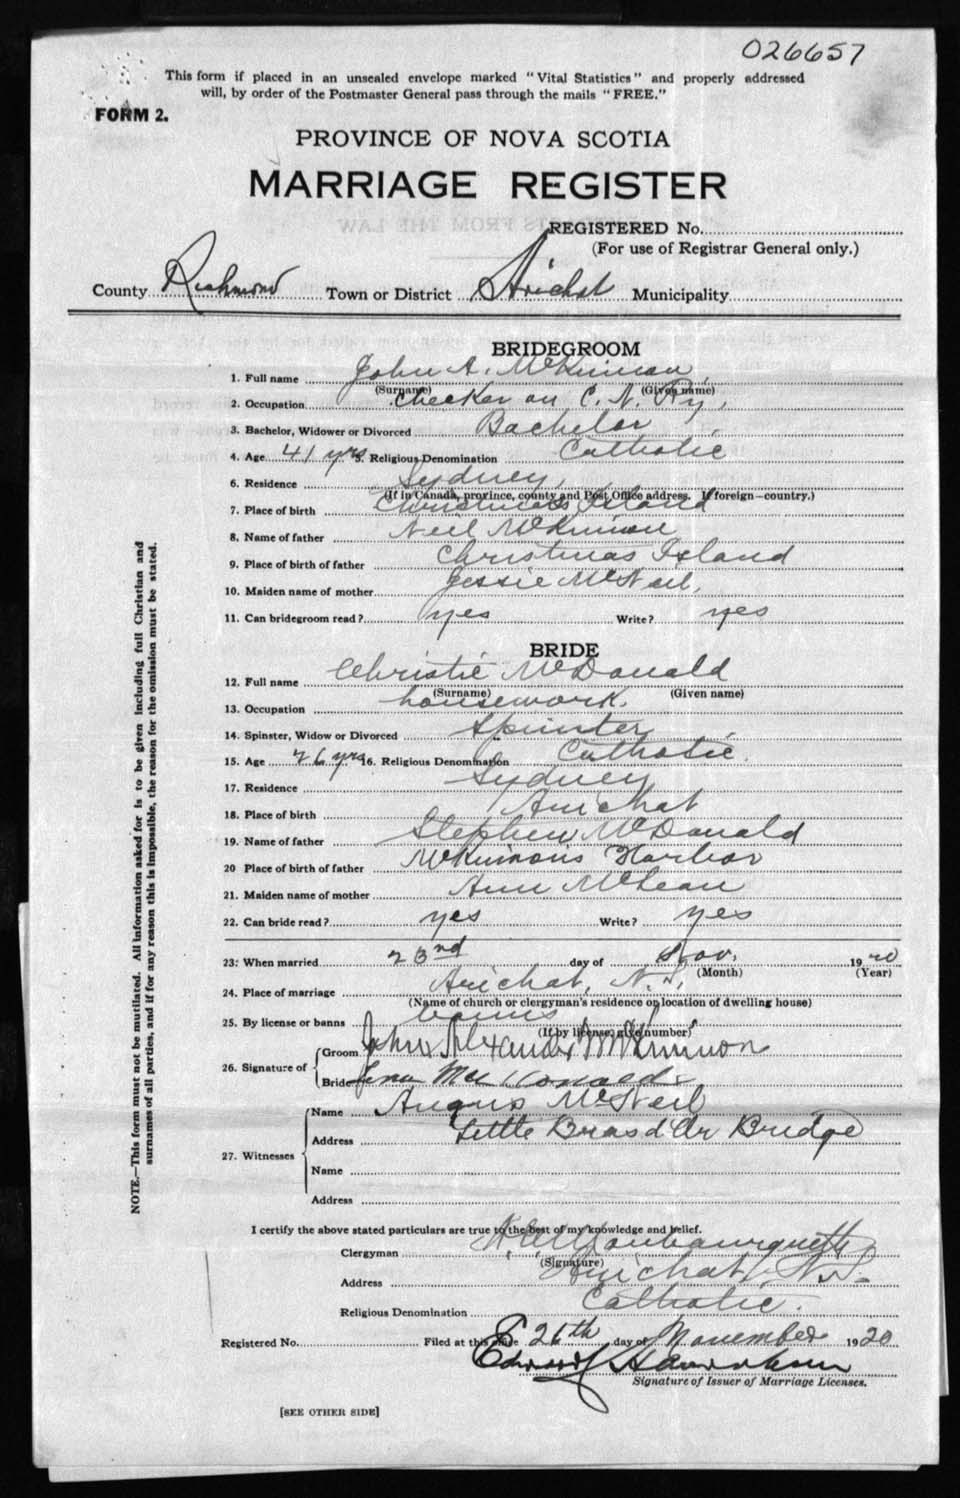 026657
This form if placed in an unsealed envelope marked "Vital Statistics" and properly addressed
will, by order of the Postmaster General pass through the mails "FREE."
FORM 2.
PROVINCE OF NOVA SCOTIA
MARRIAGE REGISTER
REGISTERED No.
(For use of Registrar General only.)
County Richmond Town or District Arichat Municipality
BRIDEGROOM
1. Full name John A. McKinnon,
(Surname) (Given name)
2. Occupation checker on C. N. Ry,
3. Bachelor, Widower or Divorced Bachelor
4. Age 41 yrs 5. Religious Denomination Catholic
6. Residence Sydney,
(If in Canada, province, county and Post Office address. If foreign—country.)
7. Place of birth Christmas Island
8. Name of father Neil McKinnon
9. Place of birth of father Christmas Island
10. Maiden name of mother Jessie McNeil,
11. Can bridegroom read? yes Write? yes
BRIDE
12. Full name Christie McDonald
(Surname) (Given name)
13. Occupation housework.
14. Spinster, Widow or Divorced Spinster
15. Age 26 yrs 16. Religious Denomination Catholic.
17. Residence Sydney
18. Place of birth Arichat
19. Name of father Stephen McDonald
20 Place of birth of father McKinnons Harbor
21. Maiden name of mother Ann McLean
22. Can bride read? yes Write? yes
23: When married 23rd day of Nov. 1920
(Month) (Year)
24. Place of marriage Arichat, N.S.
(Name of church or clergyman's residence or location of dwelling house)
25. By license or banns banns
(If by license, give number)
26. Signature of Groom John Alexander McKinnon
Bride
27. Witnesses Name Angus McNeil
Address Little Bras d'Or Bridge
Name
Address
I certify the above stated particulars are true to the best of my knowledge and belief.
Clergyman
(Signature)
Address Arichat, N.S.
Religious Denomination Catholic.
Registered No. Filed at this office 26th day of November 1920
Edward
Signature of Issuer of Marriage Licenses.
[SEE OTHER SIDE]
NOTE.—This form must not be mutilated. All information asked for is to be given including full Christian and
surnames of all parties, and if for any reason this is impossible, the reason for the omission must be stated.